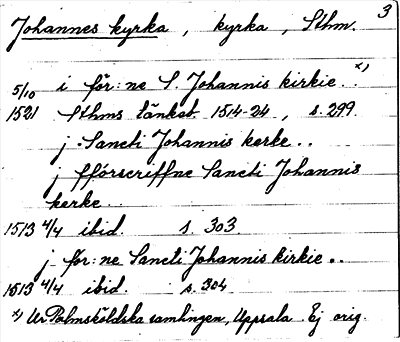 3
Johannes kyrka, kyrka, Sthm.
5/10 i för:ne S. Johannis kirkie..x)
1521 Sthms tänkeb. 1514-24, s. 299.
j Sancti Johannis kerke..
j fförscriffne Sancti Johannis
kerke..
1513 4/4 ibid. s. 303
j för:ne Sancti Johannis kirkie..
1513 4/4 ibid. s. 304
x) Ur Palmsköldska samlingen, Uppsala. Ej orig.